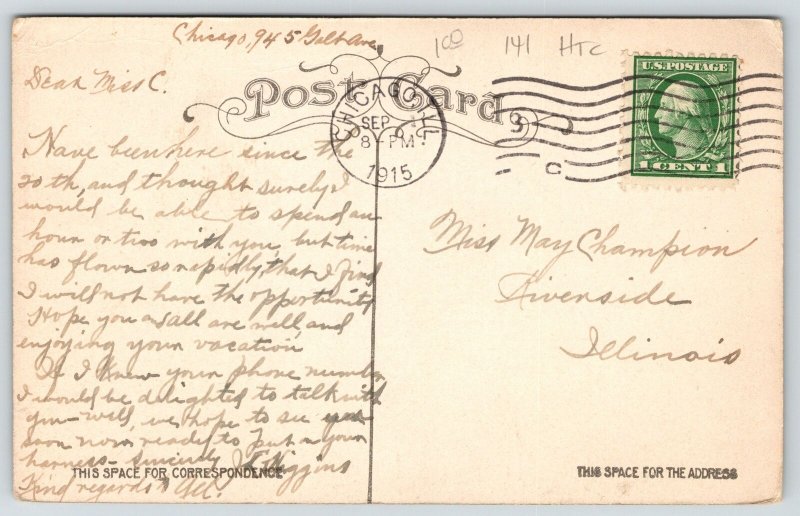 Chicago, 945 Galt Ave,
1 00 141 HTC
Dear Miss C.
Post Card
CHICAGO, ILL.
SEP
8 - PM
1915
3
C
U.S. POSTAGE
1 CENT 1
Have been here since the
20th, and thought surely I
would be able to spend an
hour or two with you, but time
has flown so rapidly, that I find
I will not have the opportunity
Hope you as all are well, and
enjoying your vacation
If I knew your phone number
I would be delighted to talk with
you - well, we hope to see you
soon now ready to put on your
harness - Sincerely J. Higgins
Kind regards to all.
Miss May Champion
Riverside
Illinois
THIS SPACE FOR CORRESPONDENCE
THIS SPACE FOR THE ADDRESS